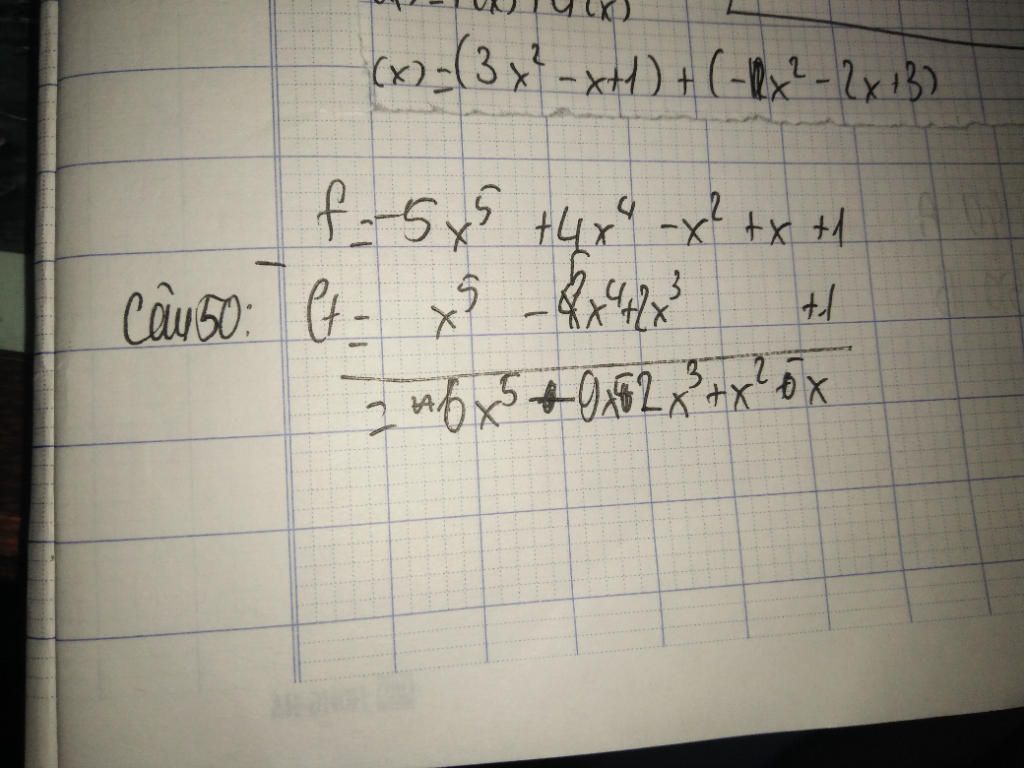 (x) = (3x² - x + 1) + (-x² - 2x + 3)
f = -5x⁵ + 4x⁴ - x² + x + 1
Câu 50: x⁵ - 5x⁴ + 2x³ + 1
= -6x⁵ 9x 2x³ + x² x